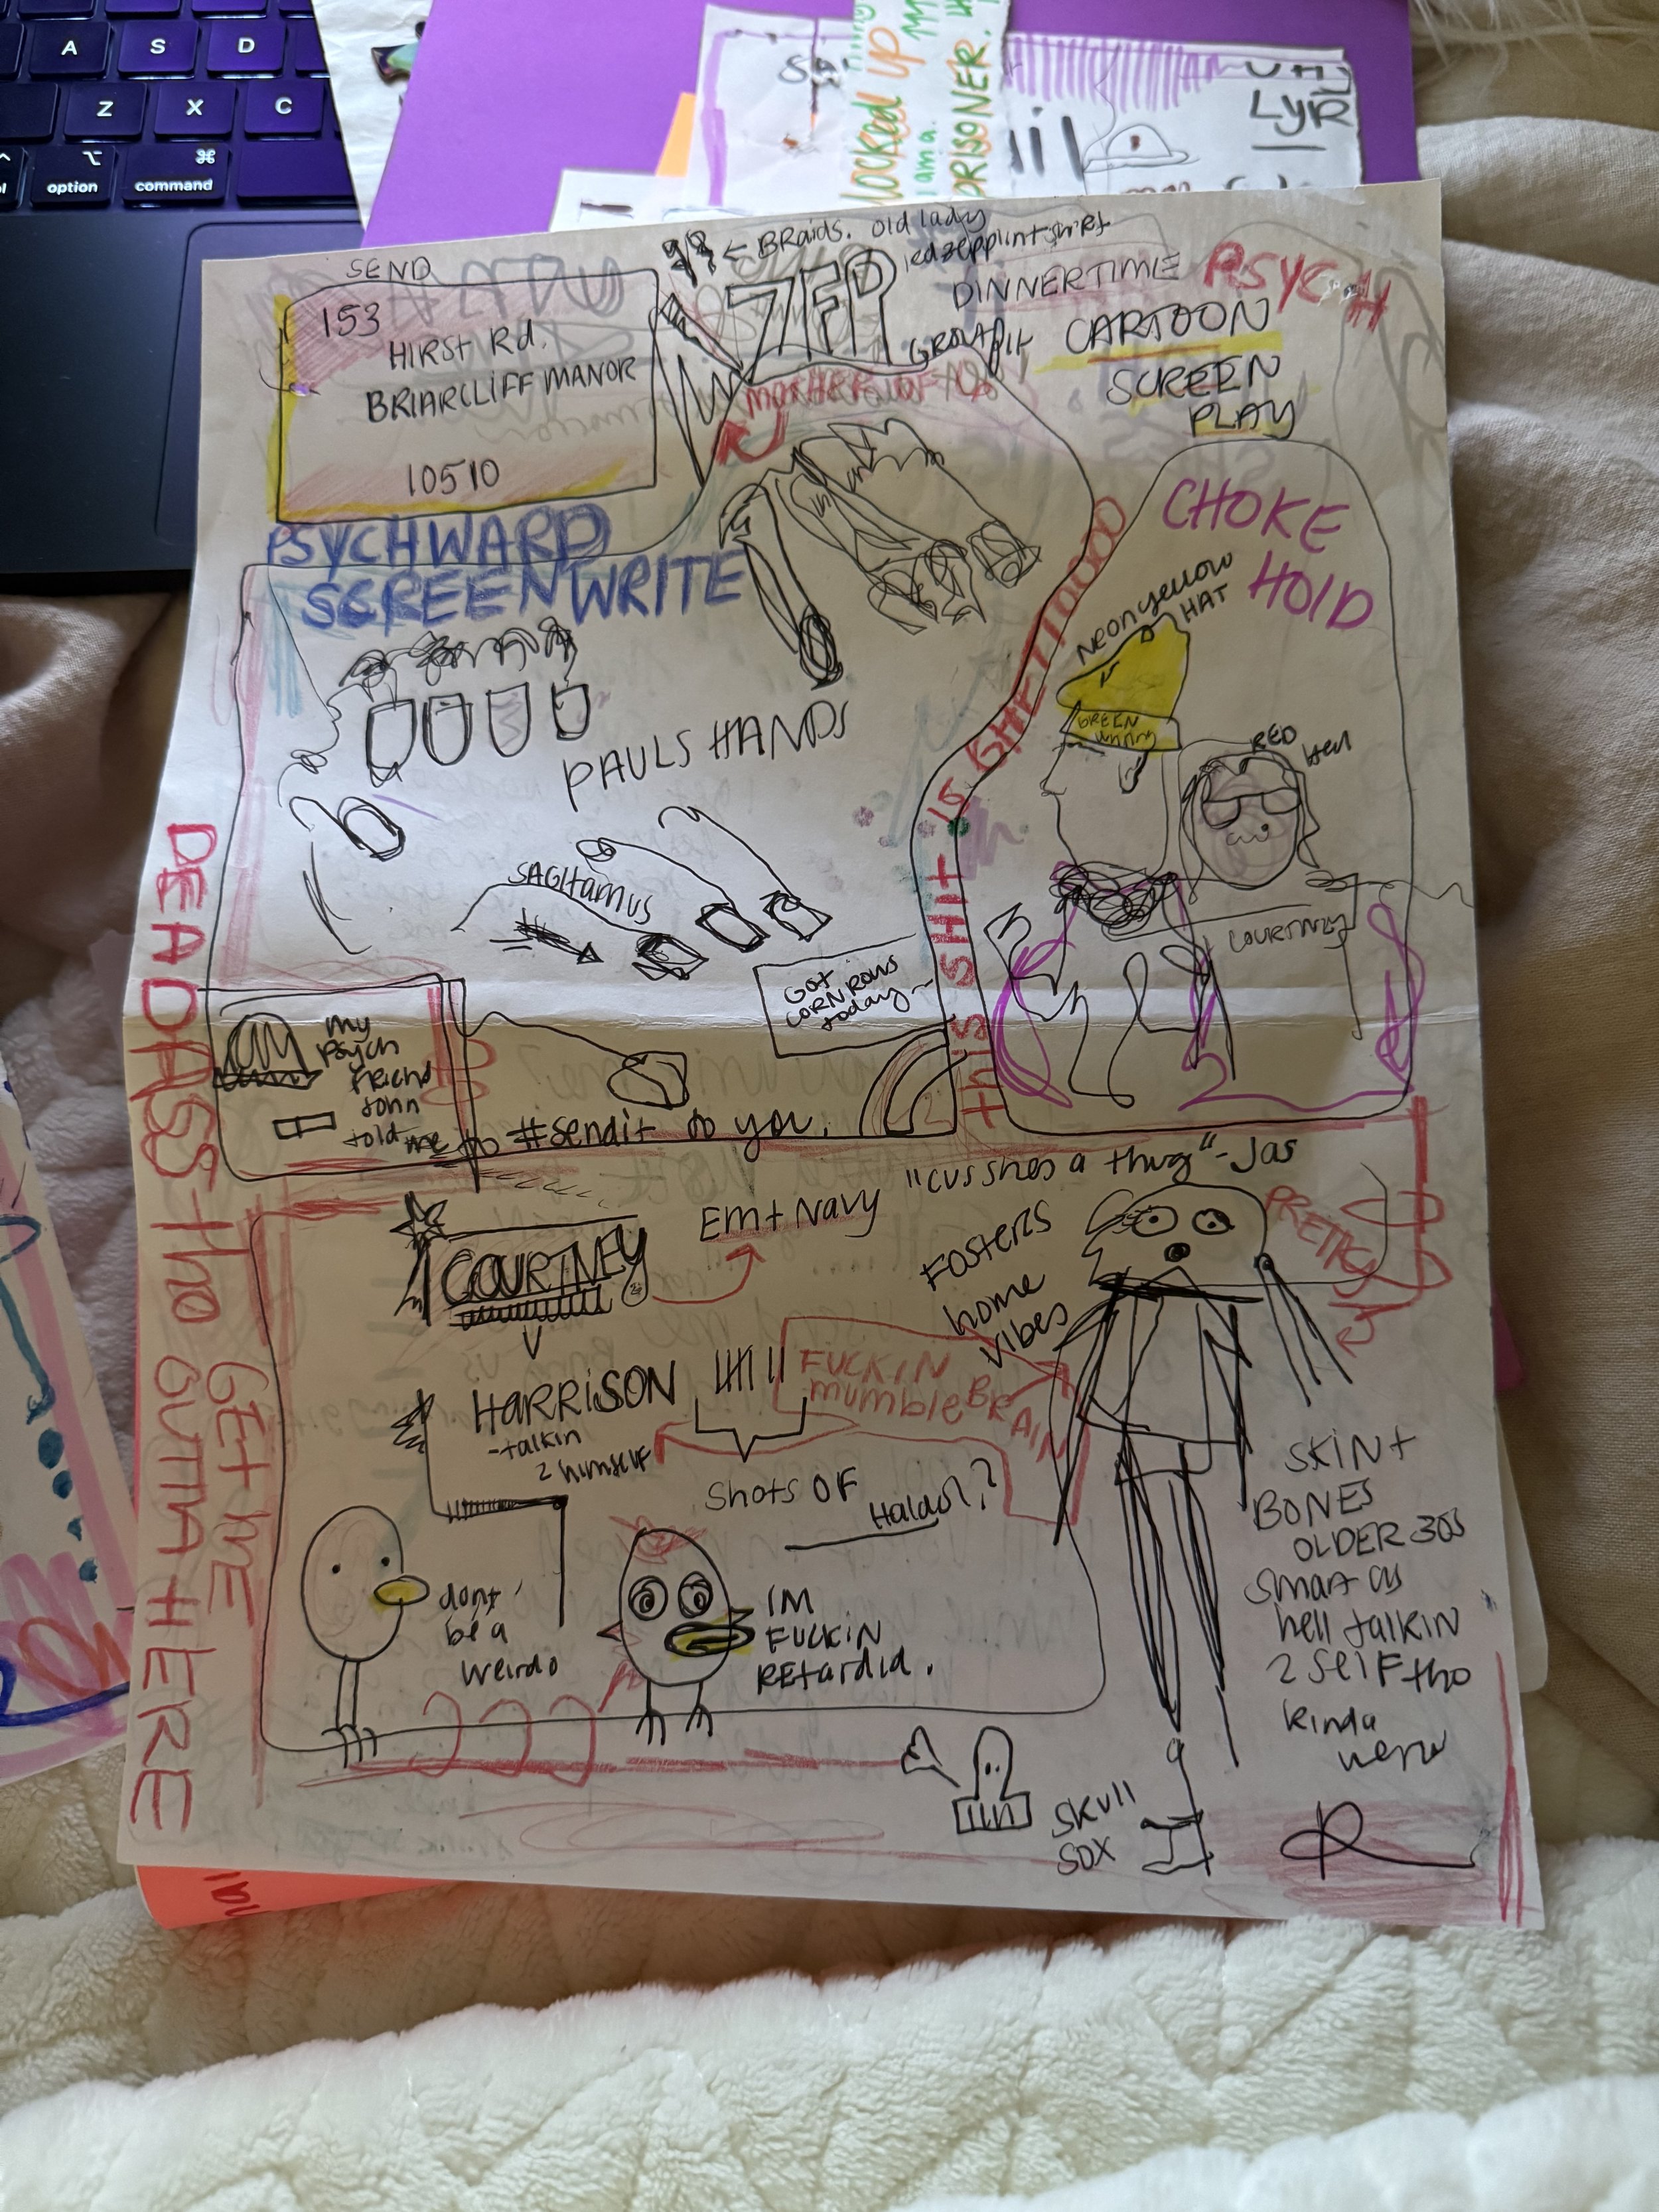 A
S
D
Z
X
C
option
command
locked up
I am a
PRISONER.
LYR
SEND
153
HIRST Rd.
BRIARCLIFF MANOR
10510
← BRaids. old lady
ledzepplin tshirt
ZEP
DINNERTIME PSYCH
CARTOON
SCREEN
PLAY
MOTHER OF 10
PSYCHWARD
SCREENWRITE
CHOKE
HOlD
NEON yellow
HAT
GREEN
RED
PAULS HANDS
COURTNEY
SAGItarius
GOt
CORNROWS
today~
this SHIt IS GHETTOOOO
my
psych
friend
John
told me to #sendit to you.
DEADASS tho
GET ME
OUTTA HERE
"cus shes a thug" - Jas
Em + Navy
COURTNEY
FOSTERS
home
vibes
PRETICSA
HARRISON
-talkin
2 himself
FUCKIN
mumble BRAIN
Shots OF
Haldol,?
SKIN +
BONES
OLDER 30s
smart as
hell talkin
2 self tho
kinda
dont
be a
weirdo
IM
FUCKIN
REtardid.
SKUll
SOX